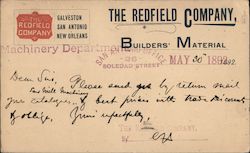 THE
REDFIELD
COMPANY
GALVESTON
SAN ANTONIO
NEW ORLEANS
THE REDFIELD COMPANY,
BUILDERS' MATERIAL
Machinery Department
SAN ANTONIO OFFICE
36
SOLEDAD STREET
MAY 20 1892
Dear Sir, Please send us by return mail
Saw Mill Machinery
your catalogue, & best prices with trade discounts
& oblige, Yours respectfully,
THE REDFIELD COMPANY,
By